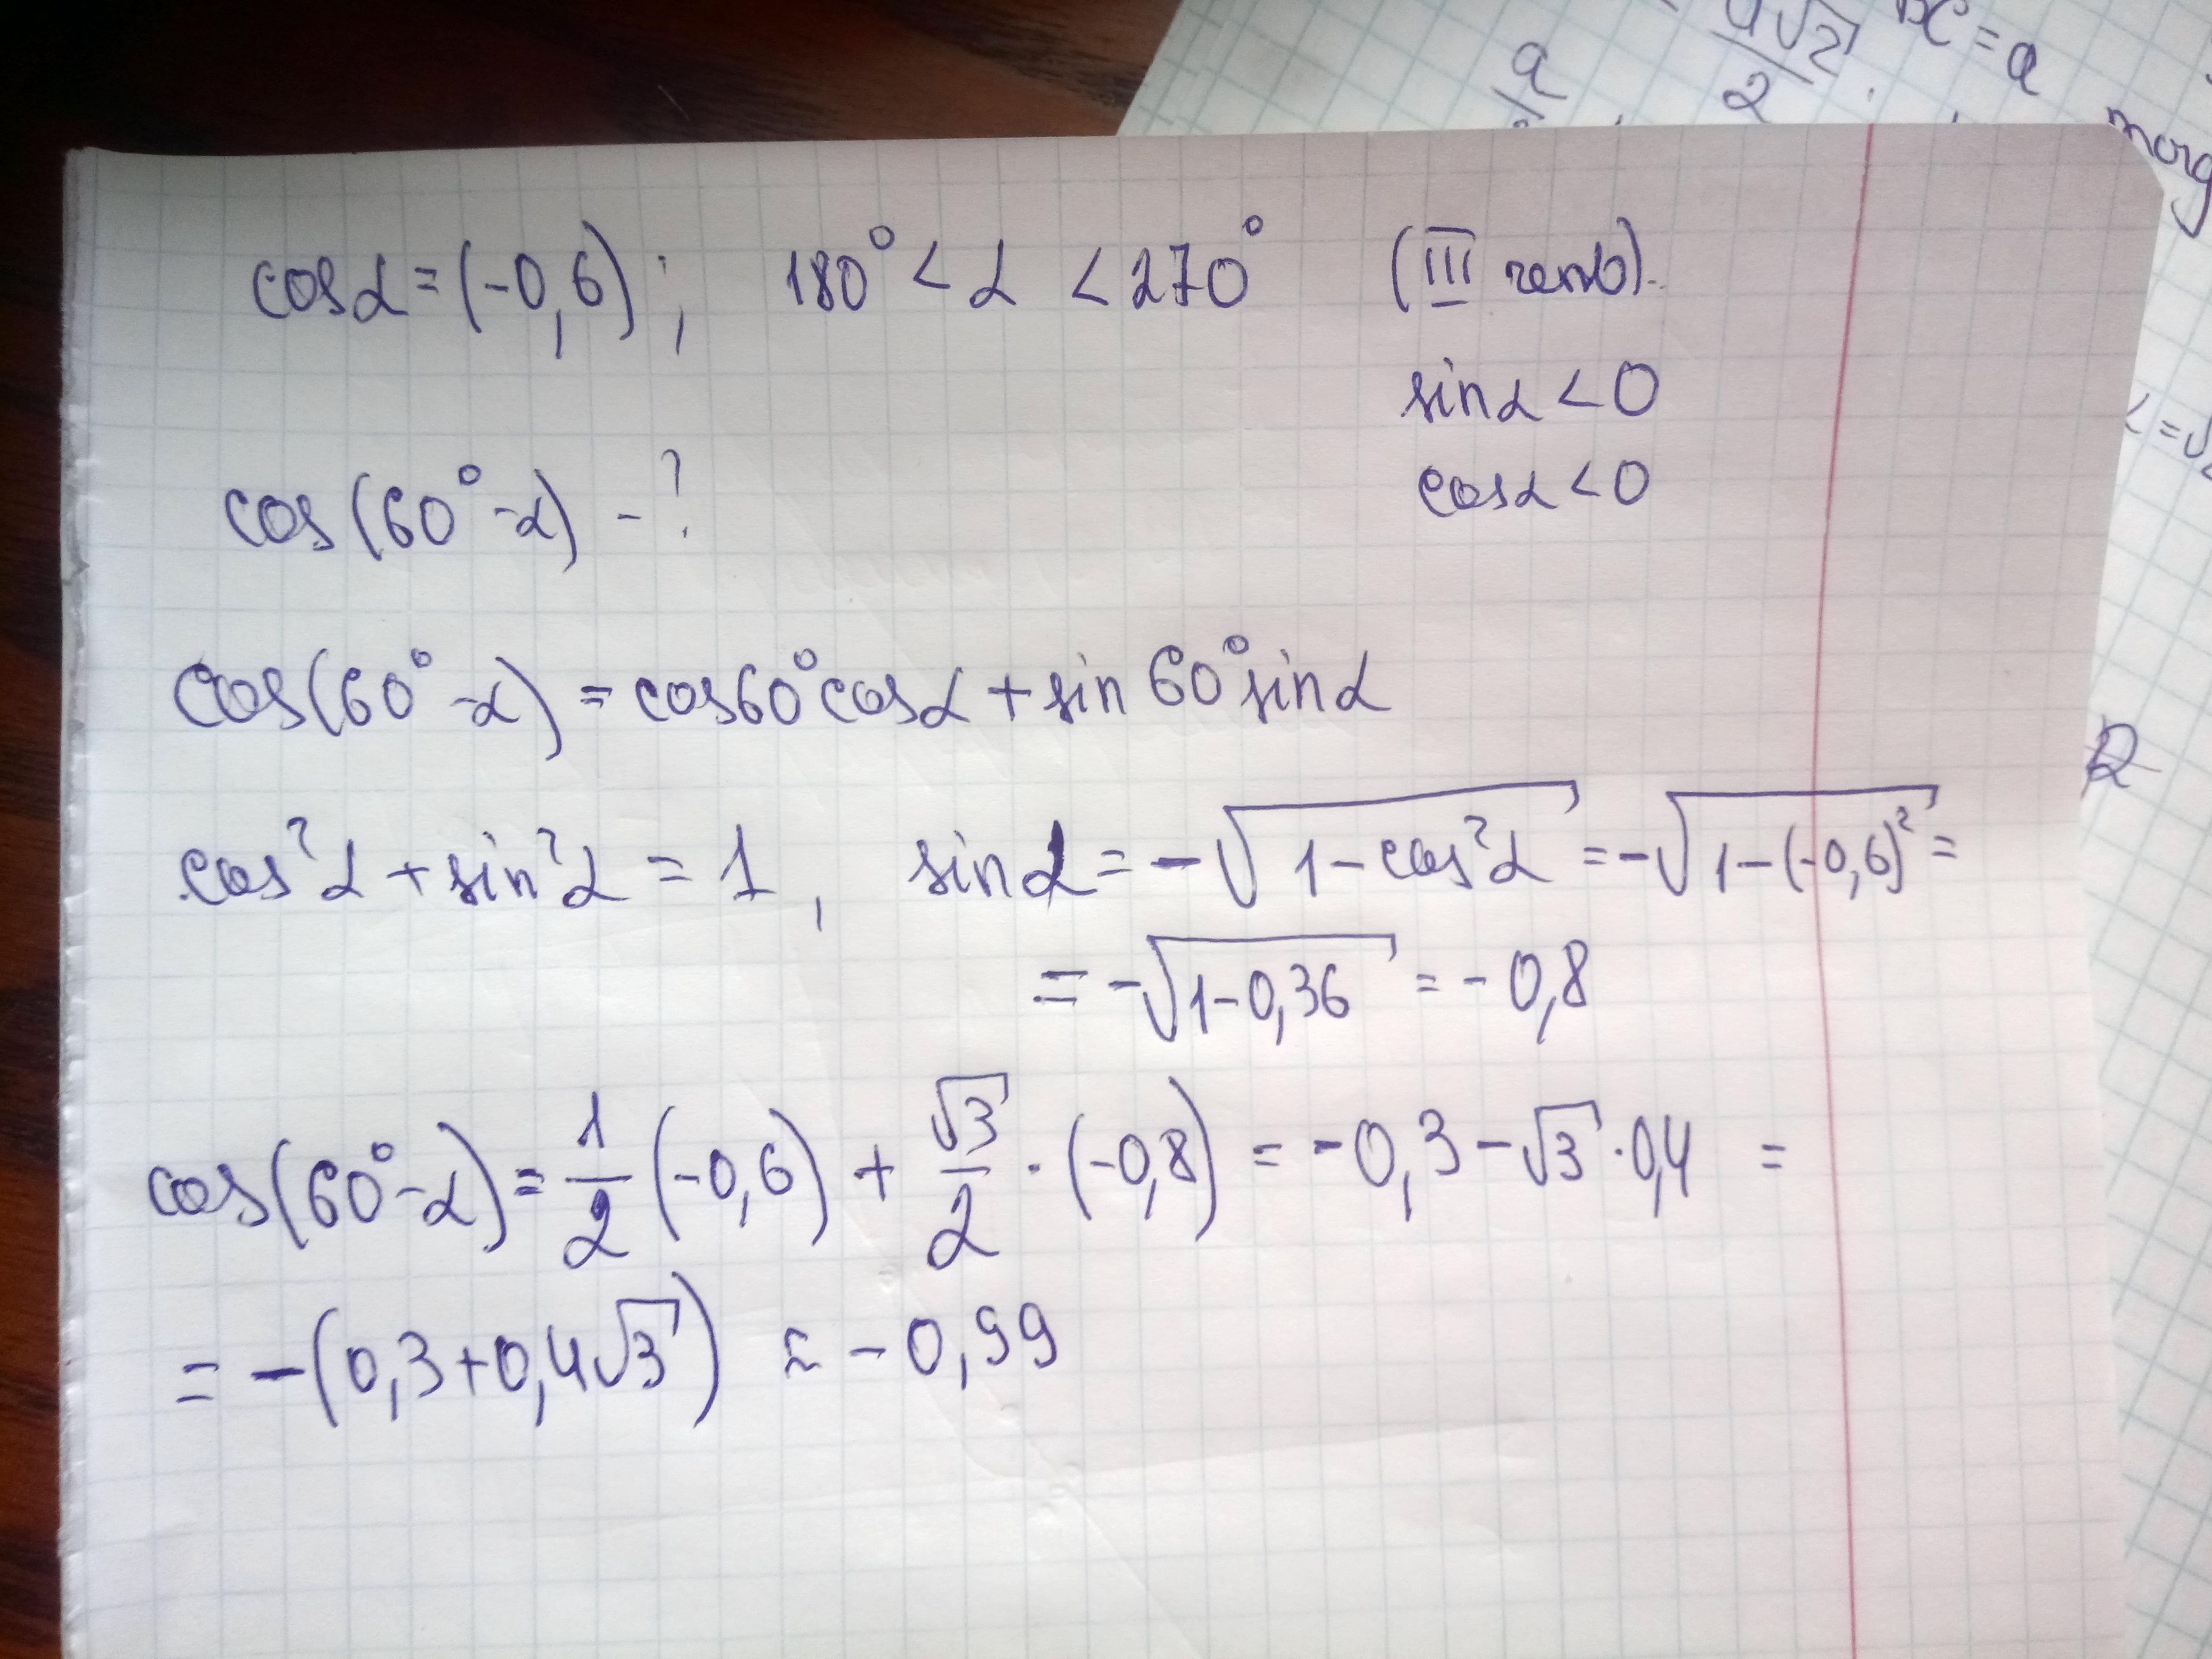 a/2 a√2/2 . BC = a
cosα = (-0,6); 180° < α < 270° (III четв).
sinα < 0
cos(60°-α) - ?
cosα < 0
cos(60°-α) = cos60°cosα + sin60°sinα
cos²α + sin²α = 1, sinα = -√(1-cos²α) = -√(1-(-0,6)²) =
= -√(1-0,36) = -0,8
cos(60°-α) = 1/2 (-0,6) + √3/2 · (-0,8) = -0,3 - √3·0,4 =
= -(0,3+0,4√3) ≈ -0,99